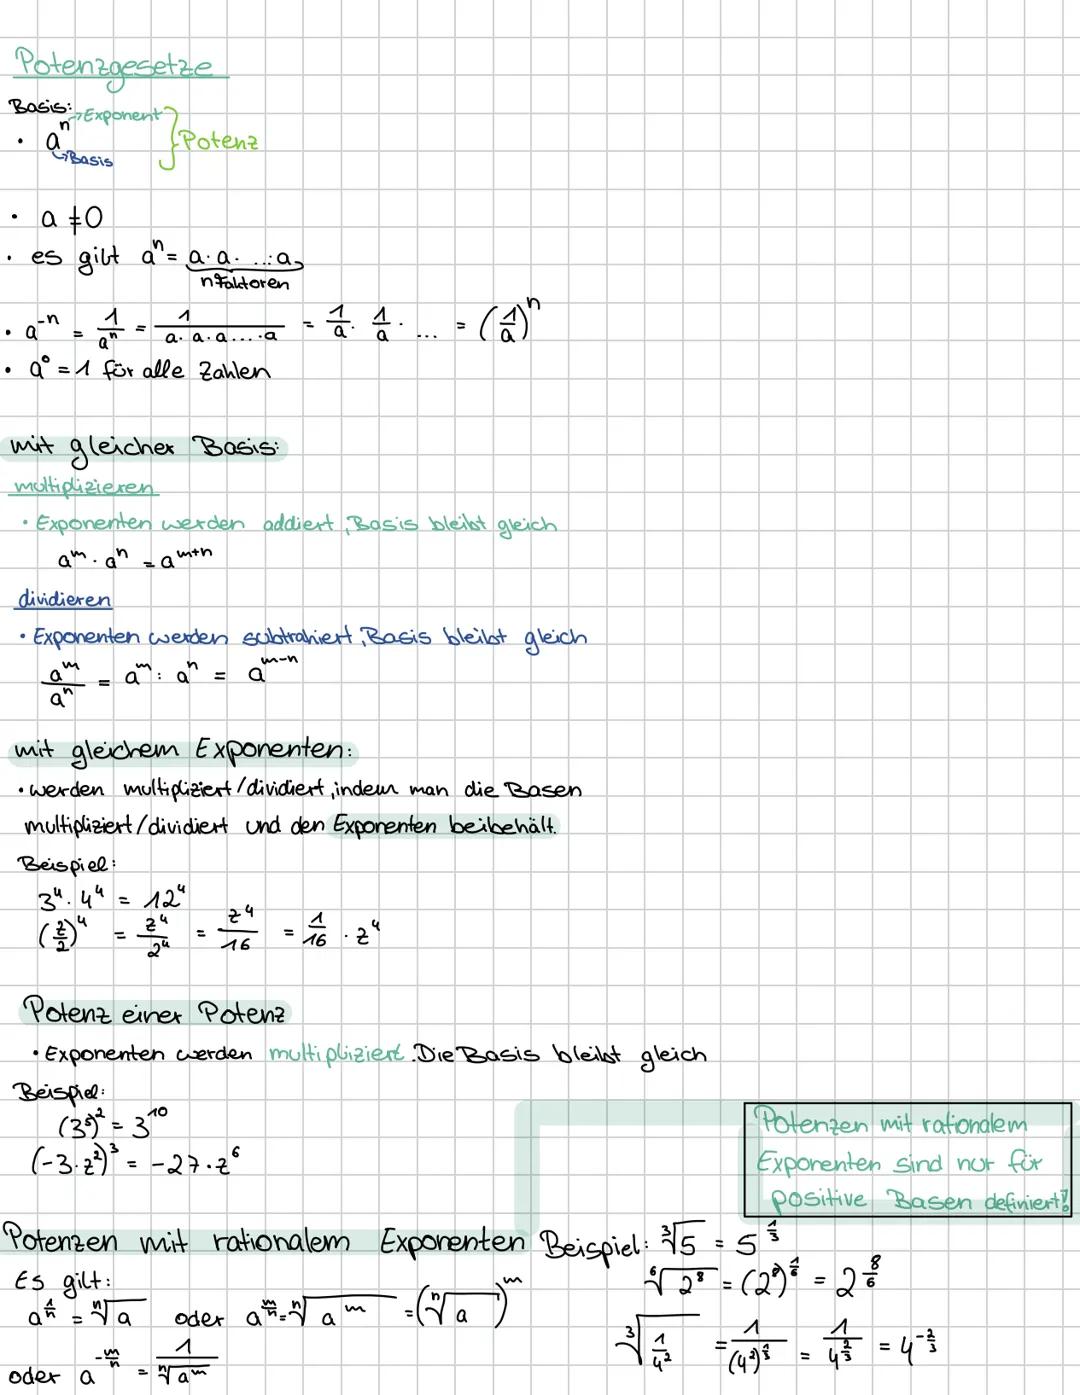 Potenzgesetze
Basis:
→Exponent
• aⁿ } Potenz
↳Basis
• a ≠ 0
• es gibt aⁿ = a · a · ... · a
n Faktoren
• a⁻ⁿ = 1/aⁿ = 1/(a · a · a ... · a) = 1/a · 1/a · ... = (1/a)ⁿ
• a⁰ = 1 für alle Zahlen
mit gleicher Basis:
multiplizieren
• Exponenten werden addiert, Basis bleibt gleich
aᵐ · aⁿ = aᵐ⁺ⁿ
dividieren
• Exponenten werden subtrahiert, Basis bleibt gleich
aᵐ/aⁿ = aᵐ : aⁿ = aᵐ⁻ⁿ
mit gleichem Exponenten:
• werden multipliziert/dividiert, indem man die Basen
multipliziert/dividiert und den Exponenten beibehält.
Beispiel:
3⁴ · 4⁴ = 12⁴
(z/2)⁴ = z⁴/2⁴ = z⁴/16 = 1/16 · z⁴
Potenz einer Potenz
• Exponenten werden multipliziert. Die Basis bleibt gleich
Beispiel:
(3⁵)² = 3¹⁰
(-3 · z²)³ = -27 · z⁶
Potenzen mit rationalem
Exponenten sind nur für
positive Basen definiert!
Potenzen mit rationalem Exponenten
Es gilt:
a^(1/n) = ⁿ√a oder a^(m/n) = ⁿ√(aᵐ) = (ⁿ√a)ᵐ
oder a^(-m/n) = 1/ⁿ√(aᵐ)
Beispiel: ³√5 = 5^(1/3)
⁶√(2⁸) = (2⁸)^(1/6) = 2^(8/6)
³√(1/4²) = 1/(4²)^(1/3) = 1/4^(2/3) = 4^(-2/3)